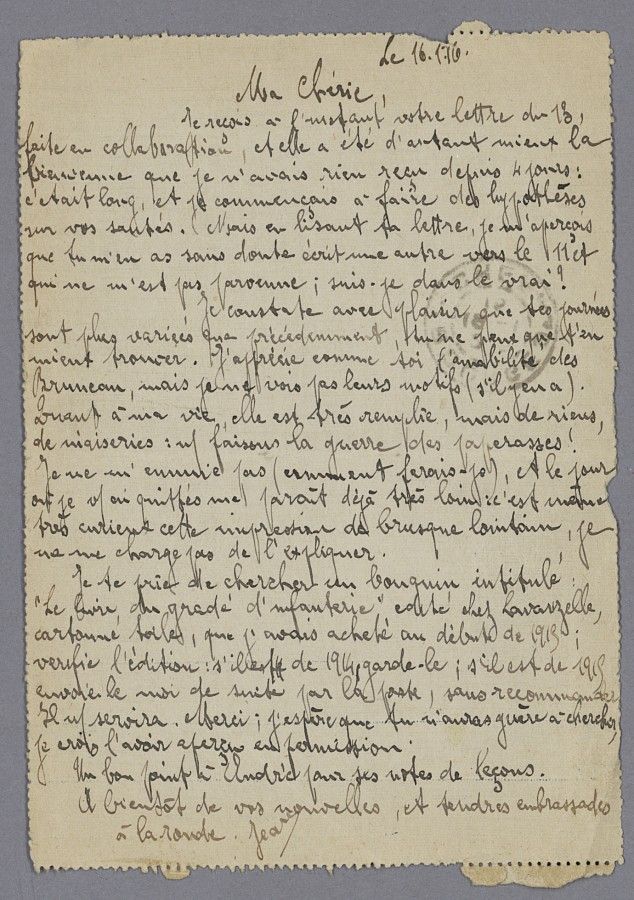 Le 16.1.16.
Ma Chérie,
Je reçois à l'instant votre lettre du 13,
faite en collaboration, et elle a été d'autant mieux la
bienvenue que je n'avais rien reçu depuis 4 jours :
c'était long, et je commençais à faire des hypothèses
sur vos santés. Mais en lisant ta lettre, je m'aperçois
que tu m'en as sans doute écrit une autre vers le 11 ct
qui ne m'est pas parvenue ; suis-je dans le vrai ?
Je constate avec plaisir que tes journées
sont plus variées que précédemment, tu ne peux que t'en
mieux trouver. J'apprécie comme toi l'amabilité des
Bruneau, mais je ne vois pas leurs motifs (s'il y en a).
Quant à ma vie, elle est très remplie, mais de riens,
de niaiseries : ns faisons la guerre des paperasses !
Je ne m'ennuie pas (comment ferais-je), et le jour
où je vs ai quittés me paraît déjà très loin : c'est même
très curieux cette impression de brusque lointain, je
ne me charge pas de l'expliquer.
Je te prie de chercher un bouquin intitulé :
"Le livre du gradé d'infanterie" édité chez Lavauzelle,
cartonné toile, que j'avais acheté au début de 1915 ;
vérifie l'édition : s'il est de 1914, garde-le ; s'il est de 1915
envoie le moi de suite par la poste, sans recommander
Il ns servira. Merci ; j'espère que tu n'auras guère à chercher,
je crois l'avoir aperçu en permission.
Un bon point à André pour ses notes de leçons.
A bientôt de vos nouvelles, et tendres embrassades
à la ronde. Jean